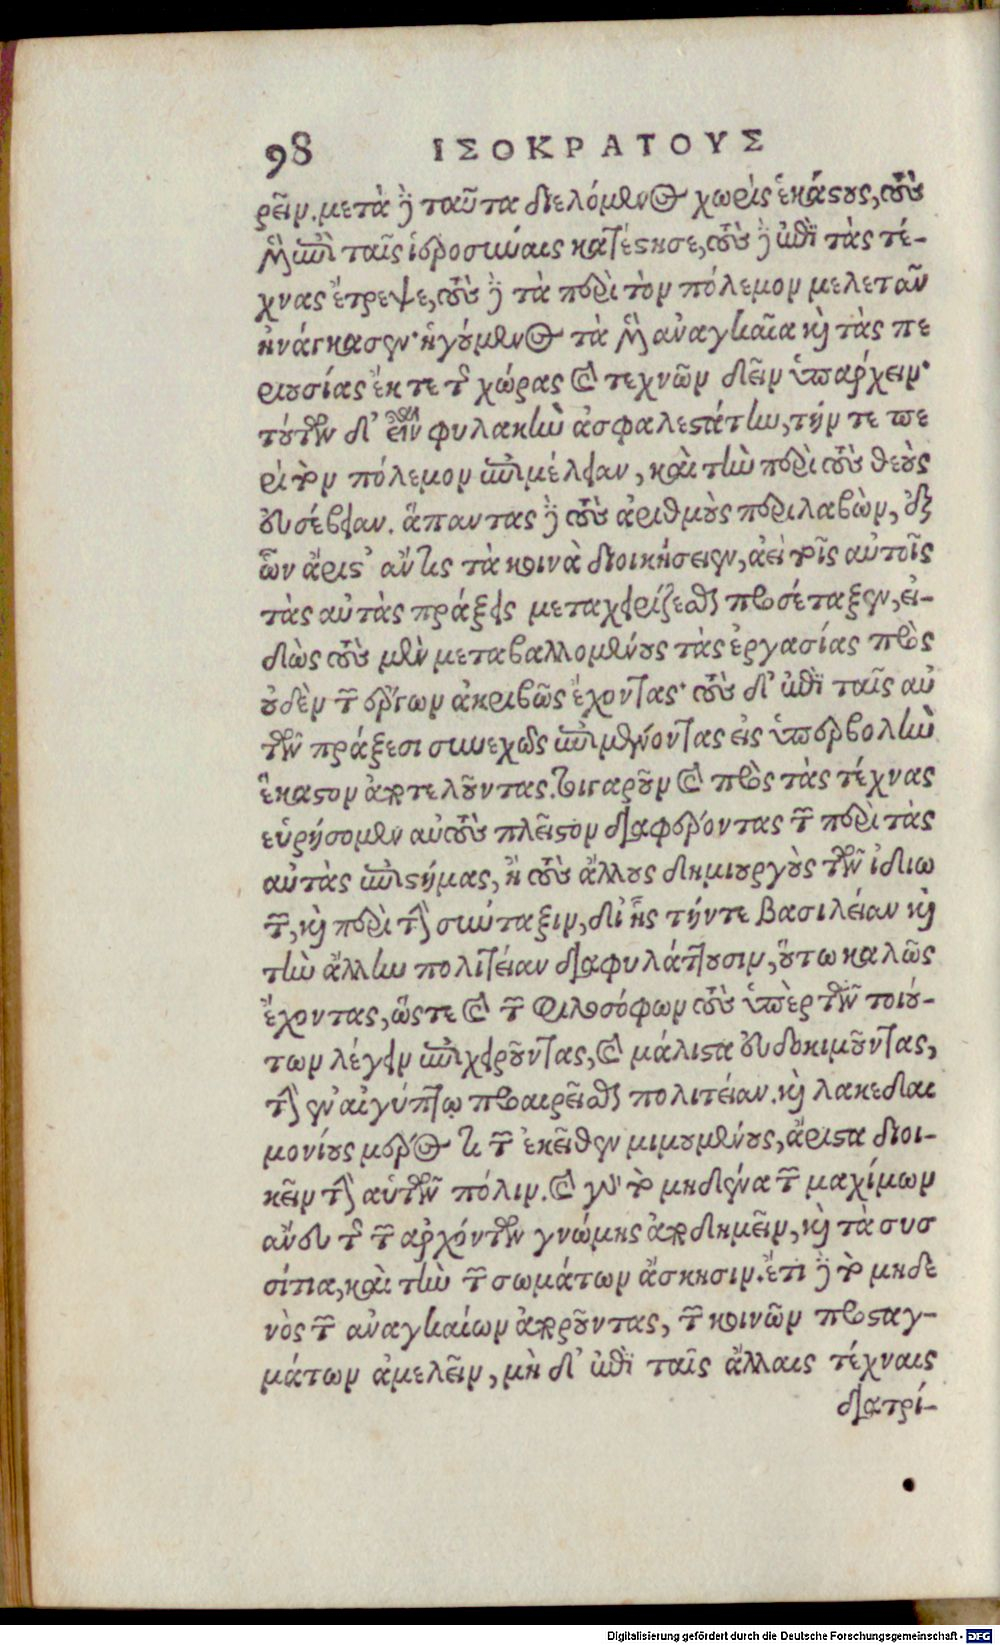 98 ΙΣΟΚΡΑΤΟΥΣ
ρεῖν. μετὰ δὲ ταῦτα διελόμενος χωρὶς ἑκάστους, τοὺς
μὲν ἐπὶ ταῖς ἱεροσύναις κατέστησε, τοὺς δὲ ἐπὶ τὰς τέ-
χνας ἔτρεψε, τοὺς δὲ τὰ περὶ τὸν πόλεμον μελετᾶν
ἠνάγκασεν· ἡγούμενος τὰ μὲν ἀναγκαῖα καὶ τὰς πε
ριουσίας ἔκ τε τῆς χώρας καὶ τεχνῶν δεῖν ὑπάρχειν·
τούτων δ' εἶναι φυλακὴν ἀσφαλεστάτην, τήν τε πε
ρὶ τὸν πόλεμον ἐπιμέλειαν, καὶ τὴν περὶ τοὺς θεοὺς
εὐσέβειαν. ἅπαντας δὲ τοὺς ἀριθμοὺς περιλαβὼν, ἐξ
ὧν ἄριστ' ἄν τις τὰ κοινὰ διοικήσειεν, ἀεὶ τοῖς αὐτοῖς
τὰς αὐτὰς πράξεις μεταχειρίζεσθαι προσέταξεν, εἰ-
δὼς τοὺς μὲν μεταβαλλομένους τὰς ἐργασίας πρὸς
οὐδὲν τῶν ἔργων ἀκριβῶς ἔχοντας· τοὺς δ' ἐπὶ ταῖς αὐ
τῶν πράξεσι συνεχῶς ἐπιμένοντας εἰς ὑπερβολὴν
ἕκαστον ἀποτελοῦντας. τοιγαροῦν καὶ πρὸς τὰς τέχνας
εὑρήσομεν αὐτοὺς πλεῖστον διαφέροντας τῶν περὶ τὰς
αὐτὰς ἐπιστήμας, ἢ τοὺς ἄλλους δημιουργοὺς τῶν ἰδιω
τῶν, καὶ περὶ τὴν σύνταξιν, δι' ἧς τήντε βασιλείαν καὶ
τὴν ἄλλην πολιτείαν διαφυλάττουσιν, οὕτω καλῶς
ἔχοντας, ὥστε καὶ τῶν φιλοσόφων τοὺς ὑπὲρ τῶν τοιού-
των λέγειν ἐπιχειροῦντας, καὶ μάλιστα εὐδοκιμοῦντας,
τὴν ἐν αἰγύπτῳ προαιρεῖσθαι πολιτείαν. καὶ λακεδαι
μονίους μέρος τι τῶν ἐκεῖθεν μιμουμένους, ἄριστα διοι-
κεῖν τὴν αὑτῶν πόλιν. καὶ γὰρ τὸ μηδένα τῶν μαχίμων
ἄνευ τῆς τῶν ἀρχόντων γνώμης ἀποδημεῖν, καὶ τὰ συσ
σίτια, καὶ τὴν τῶν σωμάτων ἄσκησιν. ἔτι δὲ τὸ μηδε
νὸς τῶν ἀναγκαίων ἀποροῦντας, τῶν κοινῶν προσταγ-
μάτων ἀμελεῖν, μὴ δ' ἐπὶ ταῖς ἄλλαις τέχναις
διατρί-
Digitalisierung gefördert durch die Deutsche Forschungsgemeinschaft - DFG